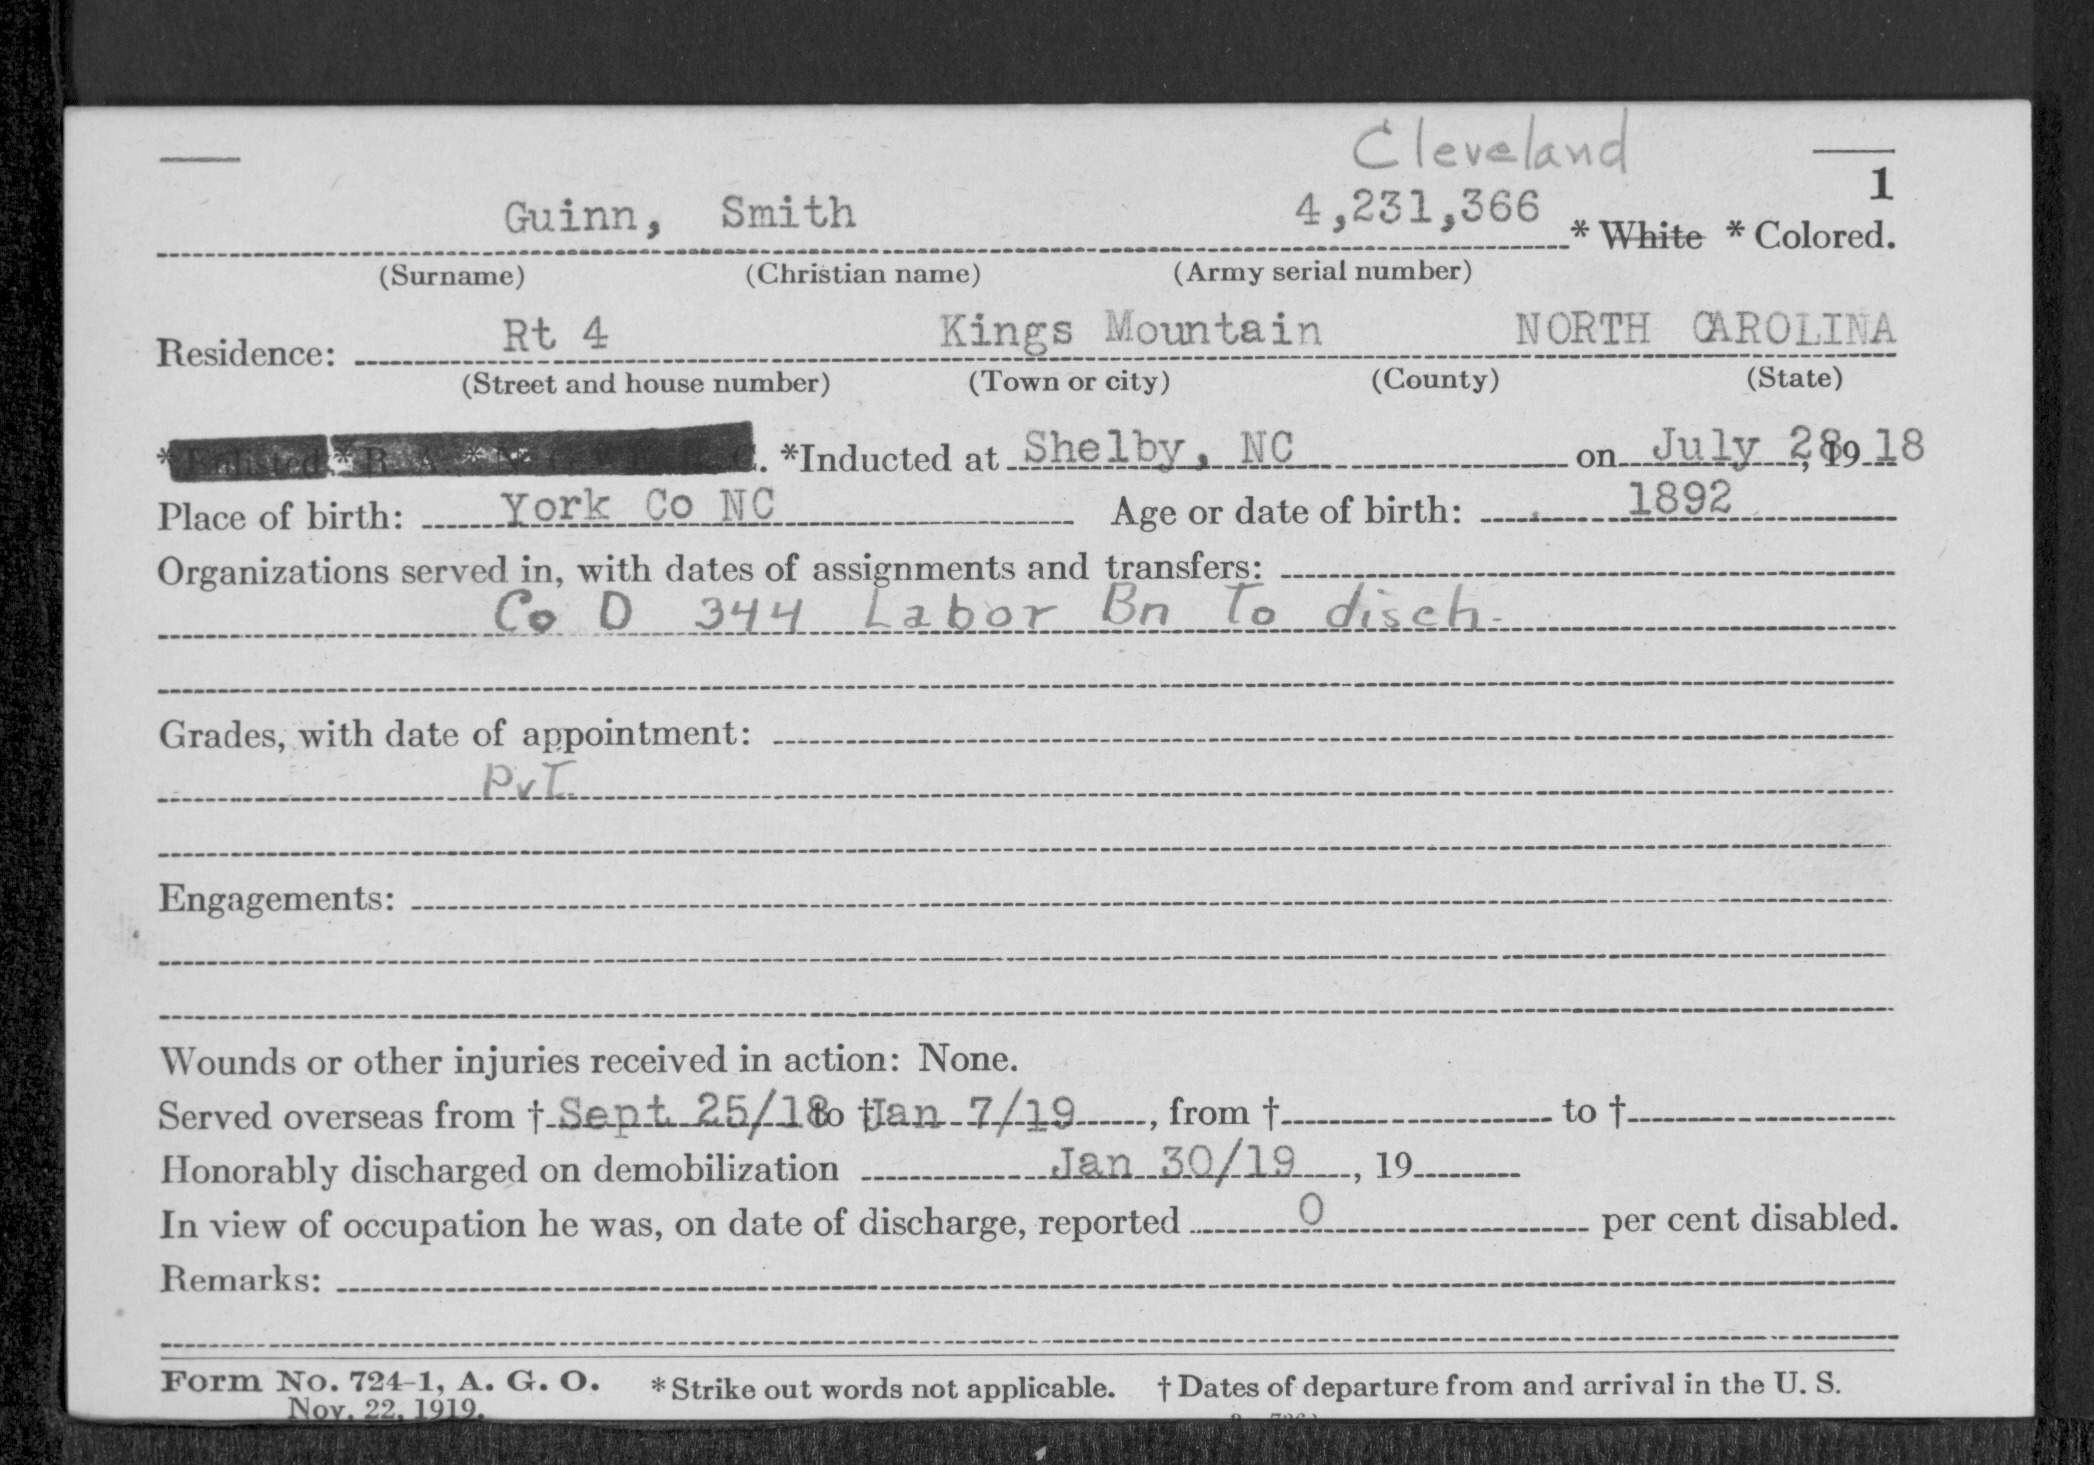 Cleveland
1
Guinn, Smith 4,231,366 * White * Colored.
(Surname) (Christian name) (Army serial number)
Residence: Rt 4 Kings Mountain NORTH CAROLINA
(Street and house number) (Town or city) (County) (State)
* Enlisted * R. A. * N. G. *Inducted at Shelby, NC on July 28, 1918
Place of birth: York Co NC Age or date of birth: 1892
Organizations served in, with dates of assignments and transfers:
Co D 344 Labor Bn To disch.
Grades, with date of appointment:
Pvt.
Engagements:
Wounds or other injuries received in action: None.
Served overseas from † Sept 25/18 to † Jan 7/19, from † to †
Honorably discharged on demobilization Jan 30/19, 19
In view of occupation he was, on date of discharge, reported 0 per cent disabled.
Remarks:
Form No. 724-1, A. G. O. *Strike out words not applicable. † Dates of departure from and arrival in the U. S.
Nov. 22, 1919.